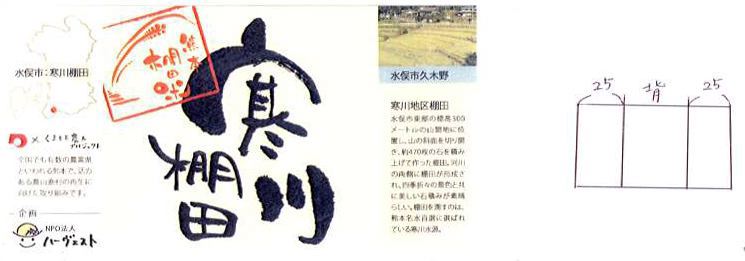 水俣市：寒川棚田
熊本
棚田米
× くまもと農人
プロジェクト
全国でも有数の農業県
といわれる熊本で、活力
ある農山漁村の再生に
向けた取り組みです。
企画
NPO法人
ハーヴェスト
寒川
棚田
水俣市久木野
寒川地区棚田
水俣市東部の標高300
メートルの山間地に位
置し、山の斜面を切り開
き、約470枚の石を積み
上げて作った棚田。河川
の両側に棚田が形成さ
れ、四季折々の景色と共
に美しい石積みが素晴
らしい。棚田を潤すのは、
熊本名水百選に選ばれ
ている寒川水源。
25 背 25